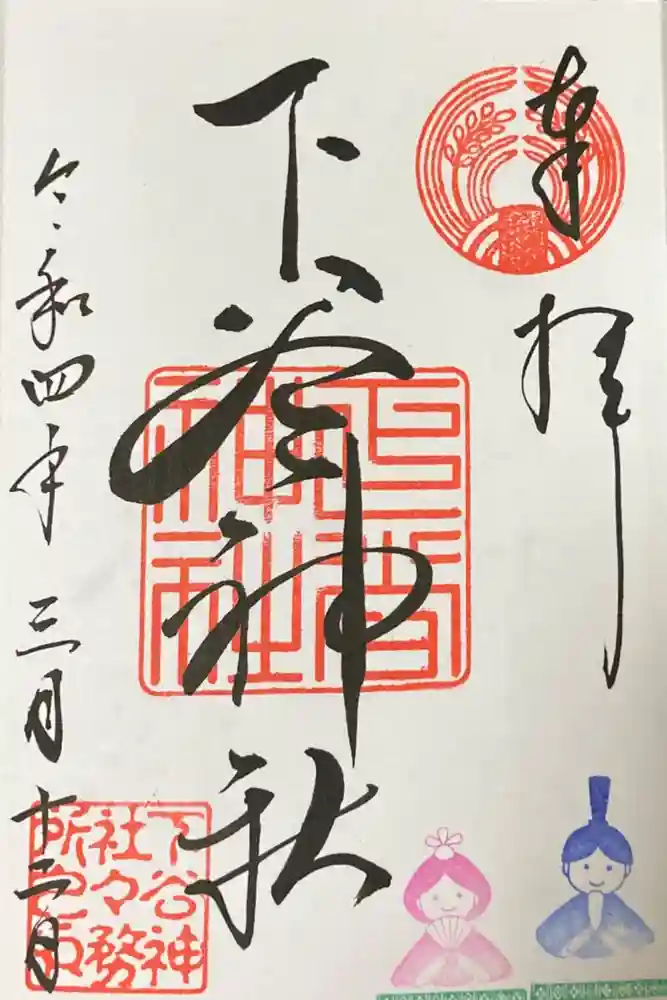 奉拝
下谷神社
下谷
神社
令和四年三月十二日
下谷神
社々務
所之印